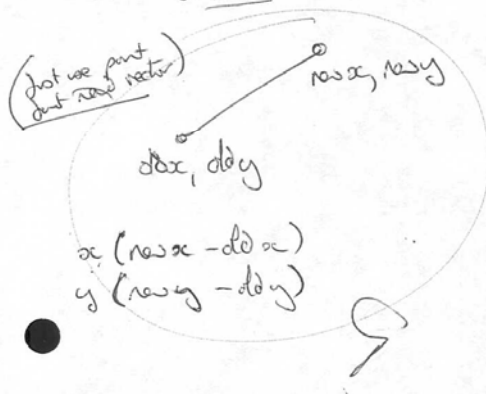 (just use point
don't need vector)
newx, newy
oldx, oldy
x (newx - oldx)
y (newy - oldy)